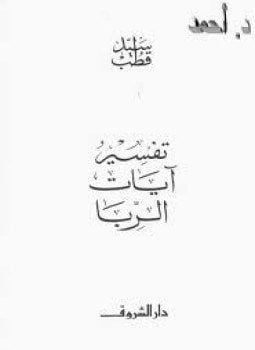 د. أحمد
سيّد
قطب
تفسير
آيات
الربا
دار الشروق